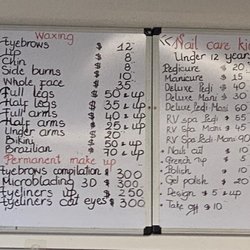 Waxing
Eyebrows $ 12
Lip $ 8
Chin $ 8
Side burns $ 10
Whole face $ 35
Full legs $ 50 & up
Half legs $ 35 & up
Full arms $ 40 & up
Half arms $ 25 & up
Under arms $ 20
Bikini $ 50 & up
Brazilian $ 70 & up
Permanent make up
Eyebrows compilation $ 300
Microblading 3D $ 300
Eyeliners up $ 250
Eyeliners cat eyes $ 300
Nail care kid
Under 12 years
Pedicure $ 20
Manicure $ 15
Deluxe Pedi $ 40
Deluxe Mani $ 30
Deluxe Pedi Mani
RV spa Pedi $ 55
RV Spa Mani $ 45
RV Spa Pedi Mani 90
Nails cut $ 10
French tip $ 5
Polish $ 10
Gel polish $ 20
Design $ 5 & up
Take off $ 10